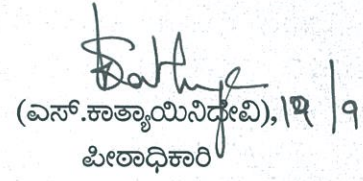 (ಎಸ್.ಕಾತ್ಯಾಯಿನಿದೇವಿ),
ಪೀಠಾಧಿಕಾರಿ